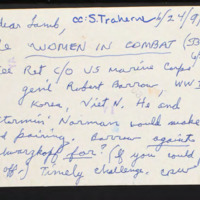 dear Lamb, cc: S. Trahern 6/24/9
e "WOMEN IN COMBAT (IB
el Ret c/o US marine Corps'
gen'l Robert Barrow WW I
Korea, Viet N. He and
tormin' Norman would make
d pairing. Barrow against
hwarzkopf for? (If you could
off.) Timely challenge. CRW